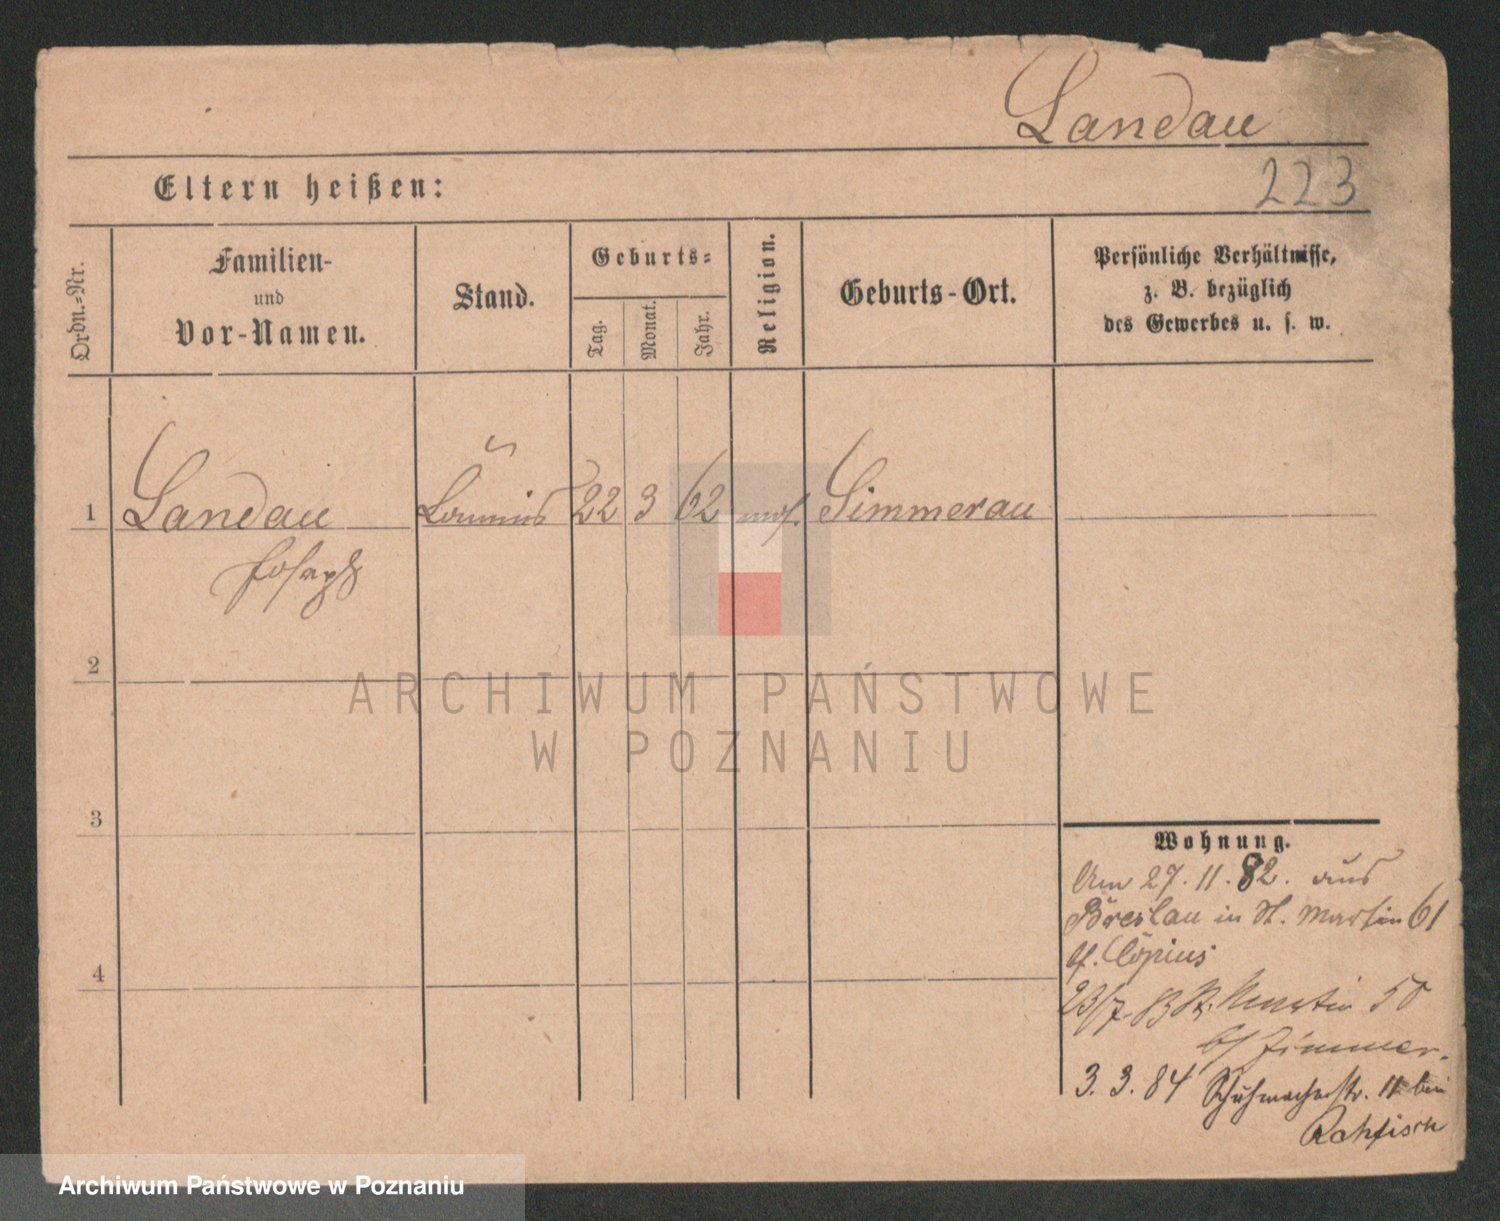 Landau
223
Eltern heißen:
Ordn.-Nr.
Familien-
und
Vor-Namen.
Stand.
Geburts-
Tag.
Monat.
Jahr.
Religion.
Geburts-Ort.
Persönliche Verhältnisse,
z. B. bezüglich
des Gewerbes u. s. w.
1
Landau
Joseph
Commis
22
3
62
mos.
Simmenau
2
3
4
Wohnung.
Am 27. 11. 82. aus
Breslau in St. Martin 61
23/7. 83 St. Martin 50
b/ Zimmer.
3. 3. 84 Schuhmacherstr. 11 bei
Rohfisch
ARCHIWUM PAŃSTWOWE
W POZNANIU
Archiwum Państwowe w Poznaniu